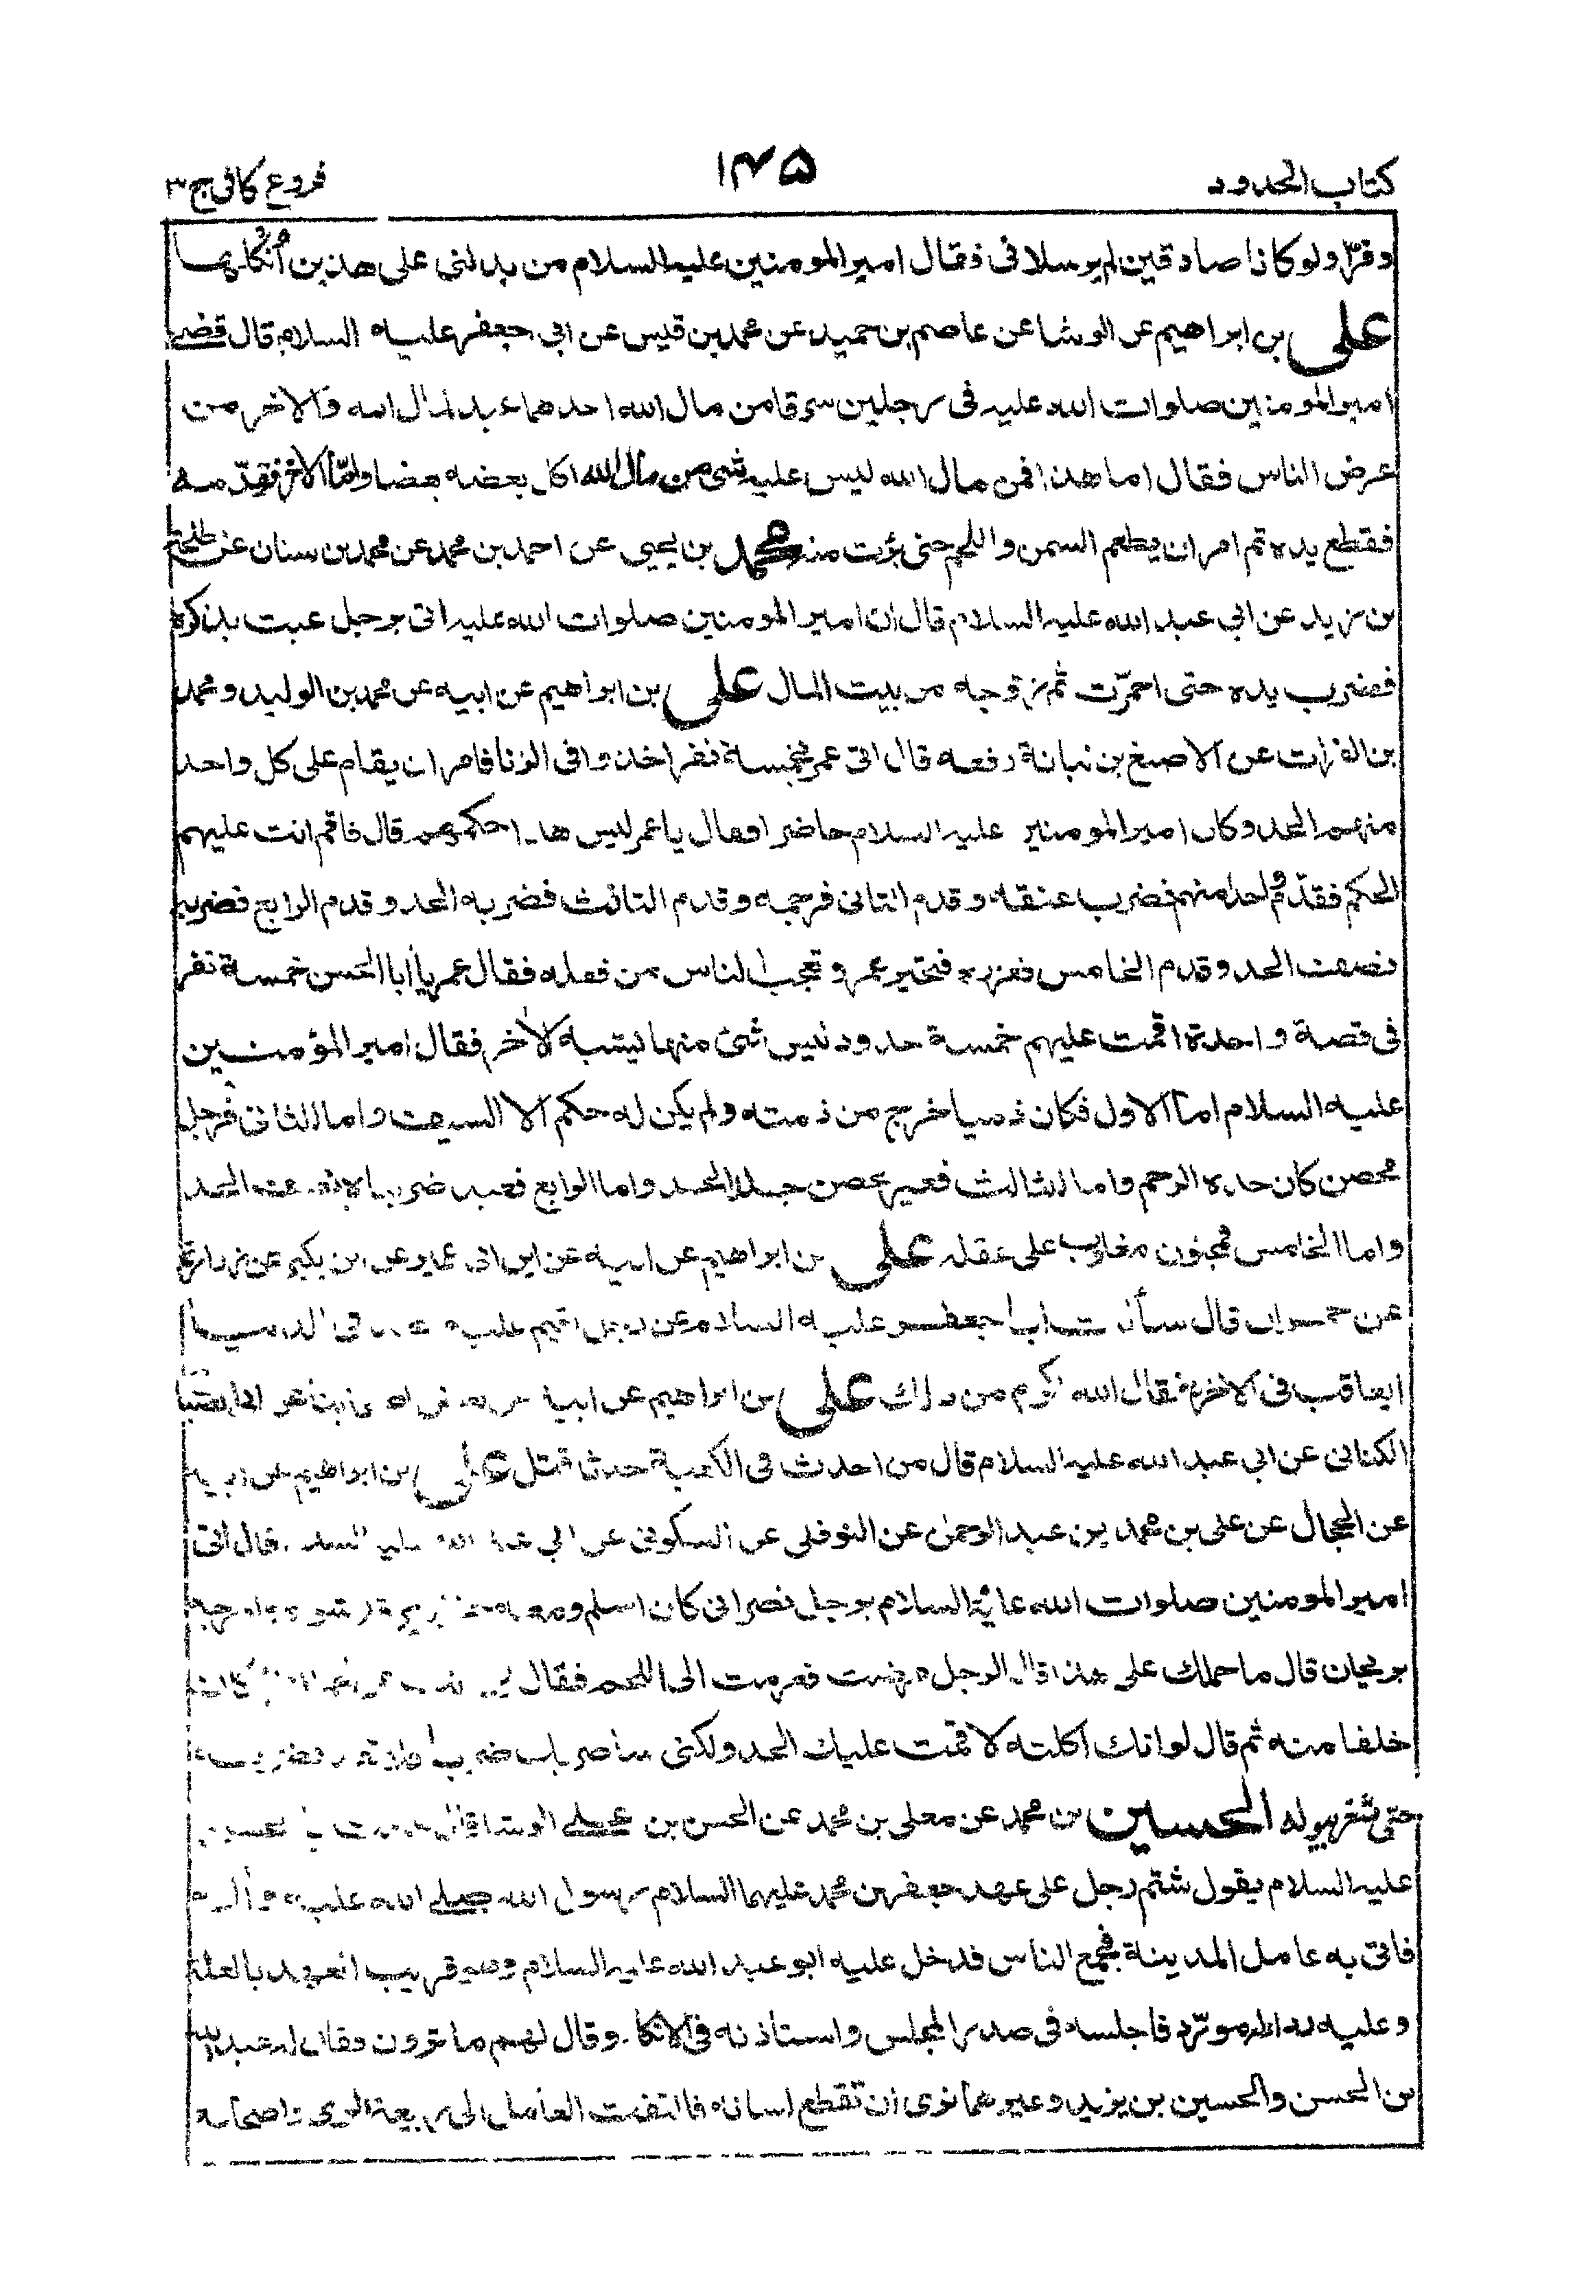 كتاب الحدود ۱۴۵ فروع كافي ج۳
و فرّا ولو كانا صادقين لم يرسلاني فقال امير المومنين عليه السلام من يدلني على هذين أُنكلهما
على بن ابراهيم عن الوشا عن عاصم بن حميد عن محمد بن قيس عن ابي جعفر عليه السلام قال قضى
امير المومنين صلوات الله عليه في رجلين سرقا من مال الله احدهما عبد لمال الله والاخر من
عرض الناس فقال اما هذا فمن مال الله ليس عليه شئ من مال الله اكل بعضه بعضا وامّا الاخر فقدّمه
فقطع يده ثم امر ان يطعم السمن واللحم حتى برئت منه محمد بن يحيى عن احمد بن محمد عن محمد بن سنان عن طلحة
بن زيد عن ابي عبد الله عليه السلام قال ان امير المومنين صلوات الله عليه اتى برجل عبث بذكره
فضرب يده حتى احمرّت ثم زوجه من بيت المال على بن ابراهيم عن ابيه عن محمد بن الوليد و محمد
بن الفرات عن الاصبغ بن نباتة رفعه قال اتى عمر بخمسة نفر اخذوا في الزنا فامر ان يقام على كل واحد
منهم الحد وكان امير المومنين عليه السلام حاضرا فقال يا عمر ليس هذا حكمهم قال فاقم انت عليهم
الحكم فقدّم واحدا منهم فضرب عنقه و قدم الثاني فرجمه و قدم الثالث فضربه الحد و قدم الرابع فضربه
نصف الحد و قدم الخامس فعزره فتحير عمر و تعجب الناس من فعله فقال عمر يا أبا الحسن خمسة نفر
في قصة واحدة اقمت عليهم خمسة حدود ليس شئ منها يشبه الاخر فقال امير المؤمنين
عليه السلام امّا الاول فكان ذميا خرج من ذمته ولم يكن له حكم الا السيف واما الثاني فرجل
محصن كان حده الرجم واما الثالث فغير محصن جلد الحد واما الرابع فعبد ضربناه نصف الحد
واما الخامس فمجنون مغلوب على عقله على بن ابراهيم عن ابيه عن ابن ابي عمير عن ابن بكير عن زرارة
عن حمران قال سألت ابا جعفر عليه السلام عن رجل اقيم عليه في الدنيا
ايعاقب في الاخرة فقال الله اكرم من ذلك على بن ابراهيم عن ابيه
الكناني عن ابي عبد الله عليه السلام قال من احدث في الكعبة حدثا قتل على بن ابراهيم عن ابيه
عن الحجال عن على بن محمد بن عبد الرحمن عن النوفلى عن السكوني عن ابي عبد الله عليه السلام قال أتى
امير المومنين صلوات الله عليه السلام برجل نصراني كان اسلم ومعه
بريحان قال ما حملك على هذا قال الرجل مرضت فقرمت الى اللحم فقال
خلفا منه ثم قال لو انك اكلته لاقمت عليك الحد ولكني
حتى شغر ببوله الحسين بن محمد عن معلى بن محمد عن الحسن بن على الوشا قال
عليه السلام يقول شتم رجل على عهد جعفر بن محمد عليهما السلام رسول الله صلى الله عليه وآله
فاتى به عامل المدينة فجمع الناس فدخل عليه ابو عبد الله عليه السلام وهو قريب العهد بالعلة
وعليه رداء له مورّد فاجلسه في صدر المجلس واستاذنه في الاتكاء وقال لهم ما ترون فقال له عبد الله
بن الحسن والحسين بن يزيد وغيرهما نرى ان تقطع لسانه فالتفت العامل الى ربيعة الرى واصحابه